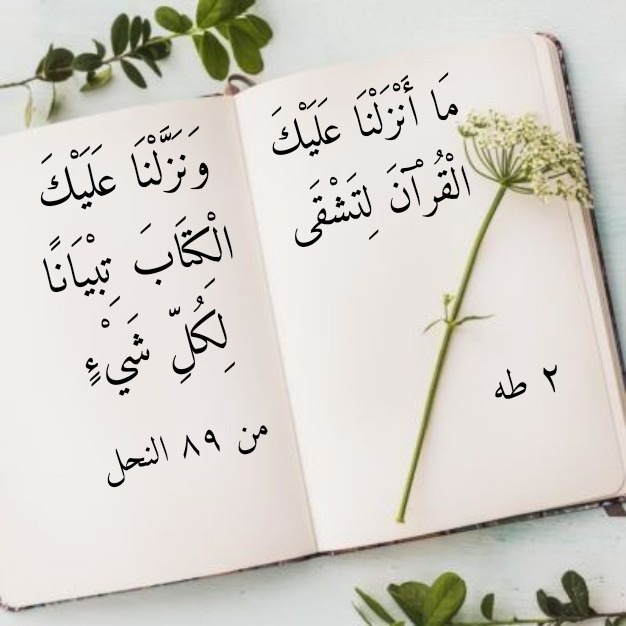 مَا أَنْزَلْنَا عَلَيْكَ
الْقُرْآنَ لِتَشْقَى
٢ طه
وَنَزَّلْنَا عَلَيْكَ
الْكِتَابَ تِبْيَانًا
لِكُلِّ شَيْءٍ
من ٨٩ النحل